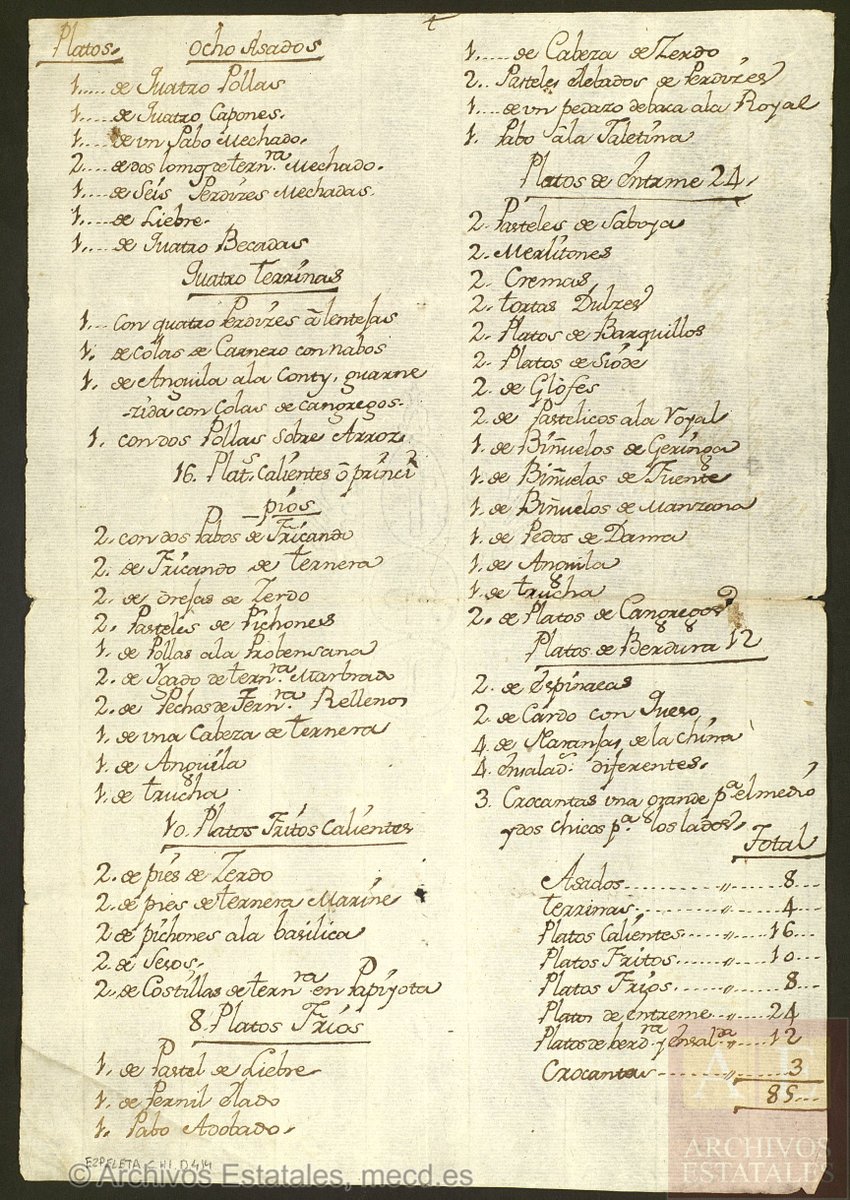 4
Platos. Ocho Asados
1..... de Quatro Pollas
1..... de Quatro Capones.
1..... de un Pabo Mechado.
2.... de dos lomos de tern.ra Mechado.
1..... de Seis Perdizes Mechadas
1..... de Liebre.
1..... de Quatro Becadas
Quatro terrinas
1... con quatro Perdizes â lentejas
1. de colas de Carnero con nabos
1. de Anguila ala Conty, guarne
-zida con Colas de cangregos.
1. con dos Pollas sobre Arroz
16. Plat.s Calientes ô princi
-pios
2. con dos Pabos de Fricando
2. de Fricando de ternera
2. de orejas de Zerdo
2. Pasteles de Pichones
1. de Pollas ala Probensana
2. de Ygado de tern.ra Marbrado
2. de Pechos de Tern.ra Rellenos
1. de una Cabeza de ternera
1. de Anguila
1. de trucha
10. Platos Fritos Calientes
2. de pies de Zerdo
2. de pies de ternera Marine
2 de pichones ala basilica
2. de Sesos.
2. de Costillas de tern.ra en Papiyota
8. Platos Frios
1. de Pastel de Liebre
1. de Pernil elado
1. Pabo Adobado.
1..... de Cabeza de Zerdo
2.. Pasteles elebados de Perdizes
1.... de un pedazo de baca ala Royal
1. Pabo âla Taletina
Platos de entrme 24.
2. Pasteles de Saboya
2. Merlitones
2. Cremas
2. tortas Dulzes
2. Platos de Barquillos
2. Platos de Siode
2. de Glofes
2. de Pastelicos ala Royal
1. de Biñuelos de Geringa
1. de Biñuelos de Fuente
1. de Biñuelos de Manzana
1. de Pedos de Dama
1. de Anguila
1. de trucha
2. de Platos de Cangregos
Platos de Berdura 12
2. de Espinacas
2. de Cardo con Queso
4. de Naranjas de la china
4. ensalad.s diferentes.
3. Crocantas una grande p.a el medio
y dos chicos p.a los lados.
Total
Asados........... " ...... 8...
terrinas........... " ...... 4...
Platos Calientes..... " ..... 16...
Platos Fritos....... " ..... 10...
Platos Frios....... " ...... 8...
Platos de entreme .. " ..... 24
Platos de berd.ra y ensal.da " .... 12
Crocantas ........ " ..... 3
85...
EZPELETA, CHI. D.414
© Archivos Estatales, mecd.es
AE
ARCHIVOS
ESTATALES